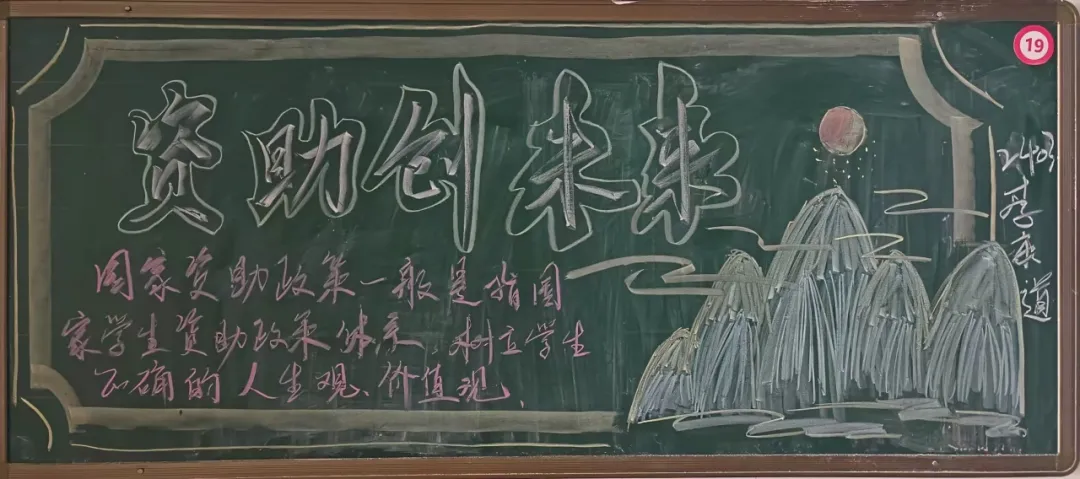 资助创未来
国家资助政策一般是指国
家学生资助政策体系、树立学生
正确的人生观、价值观、
19
2403
道